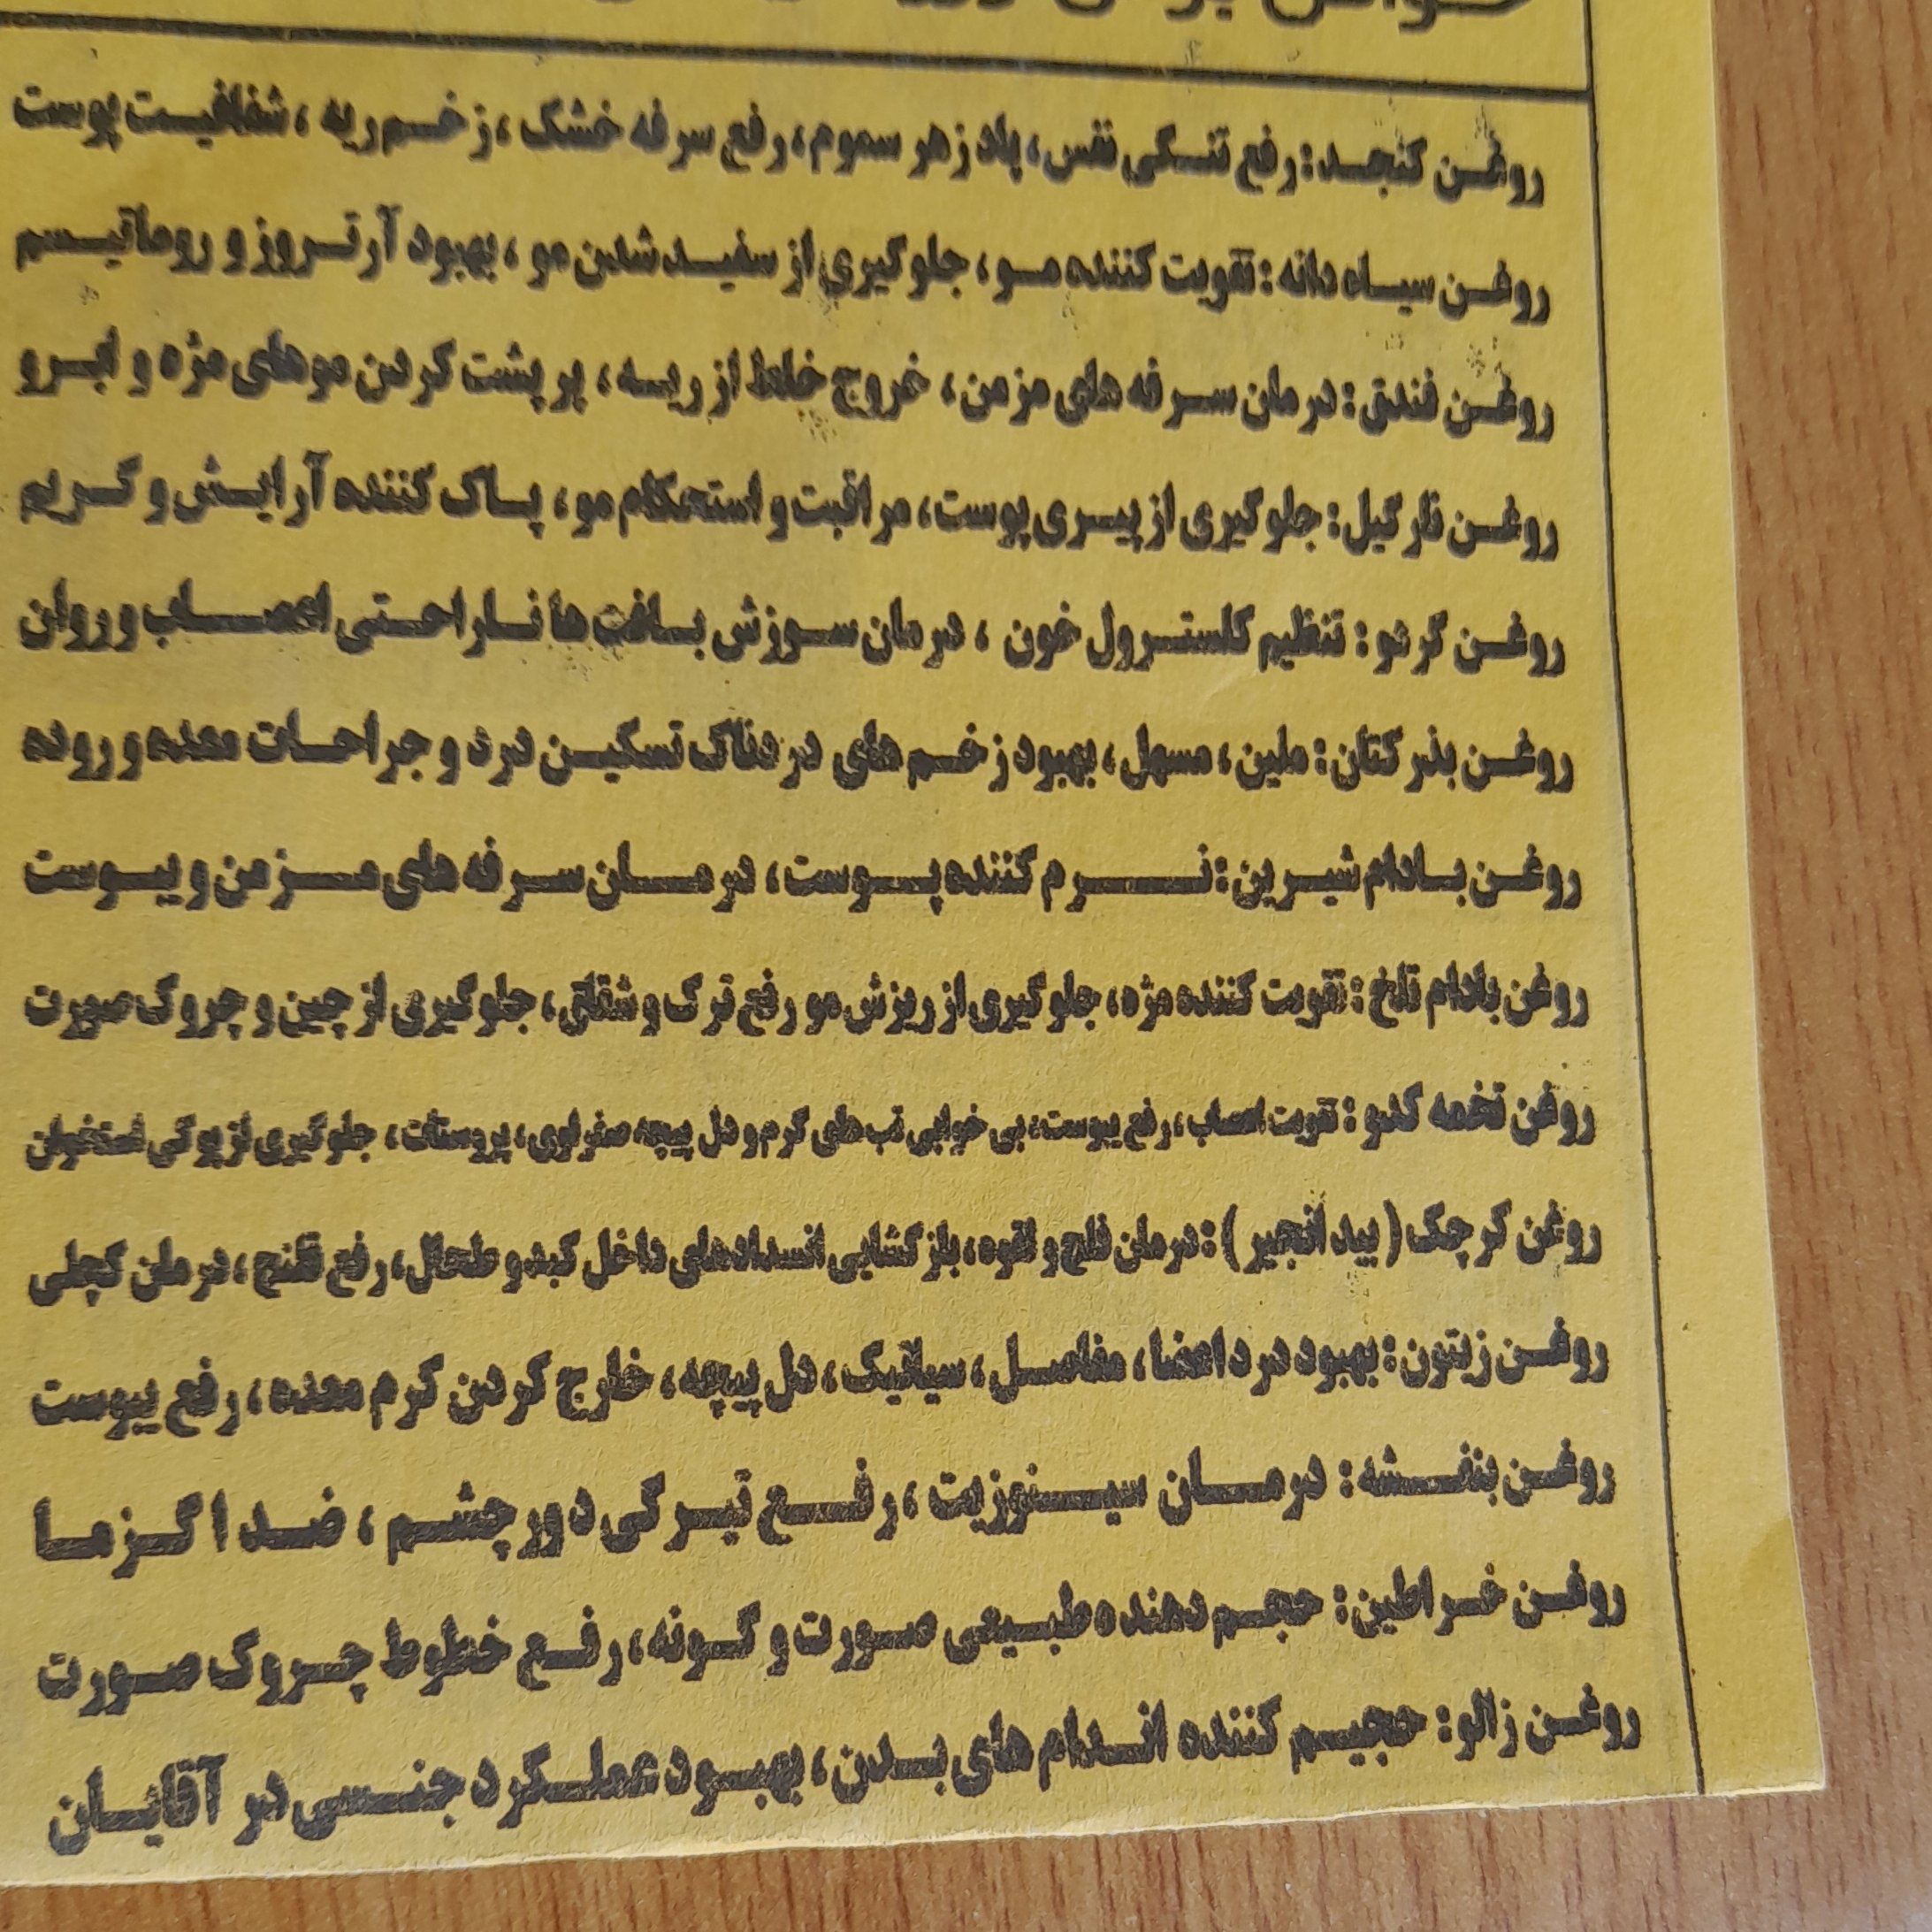 روغن کنجد: رفع تنگی نفس، پاد زهر سموم، رفع سرفه خشک، زخم ریه، شفافیت پوست
روغن سیاه دانه: تقویت کننده مو، جلوگیری از سفید شدن مو، بهبود آرتروز و روماتیسم
روغن فندق: درمان سرفه های مزمن، خروج خلط از ریه، پر پشت کردن موهای مژه و ابرو
روغن نارگیل: جلوگیری از پیری پوست، مراقبت و استحکام مو، پاک کننده آرایش و گریم
روغن گردو: تنظیم کلسترول خون، درمان سوزش بافت ها ناراحتی اعصاب و روان
روغن بذر کتان: ملین، مسهل، بهبود زخم های دردناک تسکین درد و جراحات معده و روده
روغن بادام شیرین: نرم کننده پوست، درمان سرفه های مزمن و یبوست
روغن بادام تلخ: تقویت کننده مژه، جلوگیری از ریزش مو رفع ترک و شقاق، جلوگیری از چین و چروک صورت
روغن تخمه کدو: تقویت اعصاب، رفع یبوست، بی خوابی تب های گرم و دل پیچه صفراوی، پروستات، جلوگیری از پوکی استخوان
روغن کرچک (بید انجیر): درمان فلج و لقوه، باز گشایی انسدادهای داخل کبد و طحال، رفع قلنج، درمان کچلی
روغن زیتون: بهبود درد اعضا، مفاصل، سیاتیک، دل پیچه، خارج کردن کرم معده، رفع یبوست
روغن بنفشه: درمان سینوزیت، رفع تیرگی دور چشم، ضد اگزما
روغن خراطین: حجم دهنده طبیعی صورت و گونه، رفع خطوط چروک صورت
روغن زالو: حجیم کننده اندام های بدن، بهبود عملکرد جنسی در آقایان